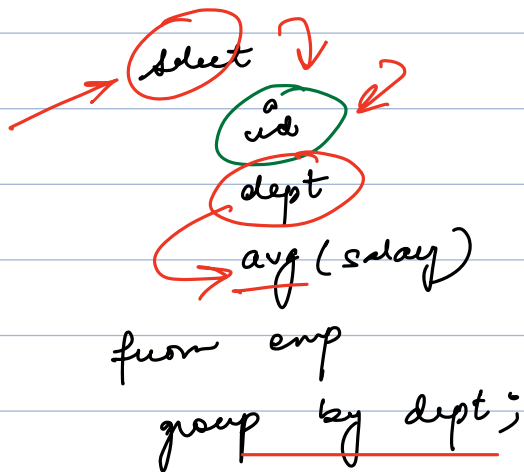 select
a
id
dept
avg (salary)
from emp
group by dept;